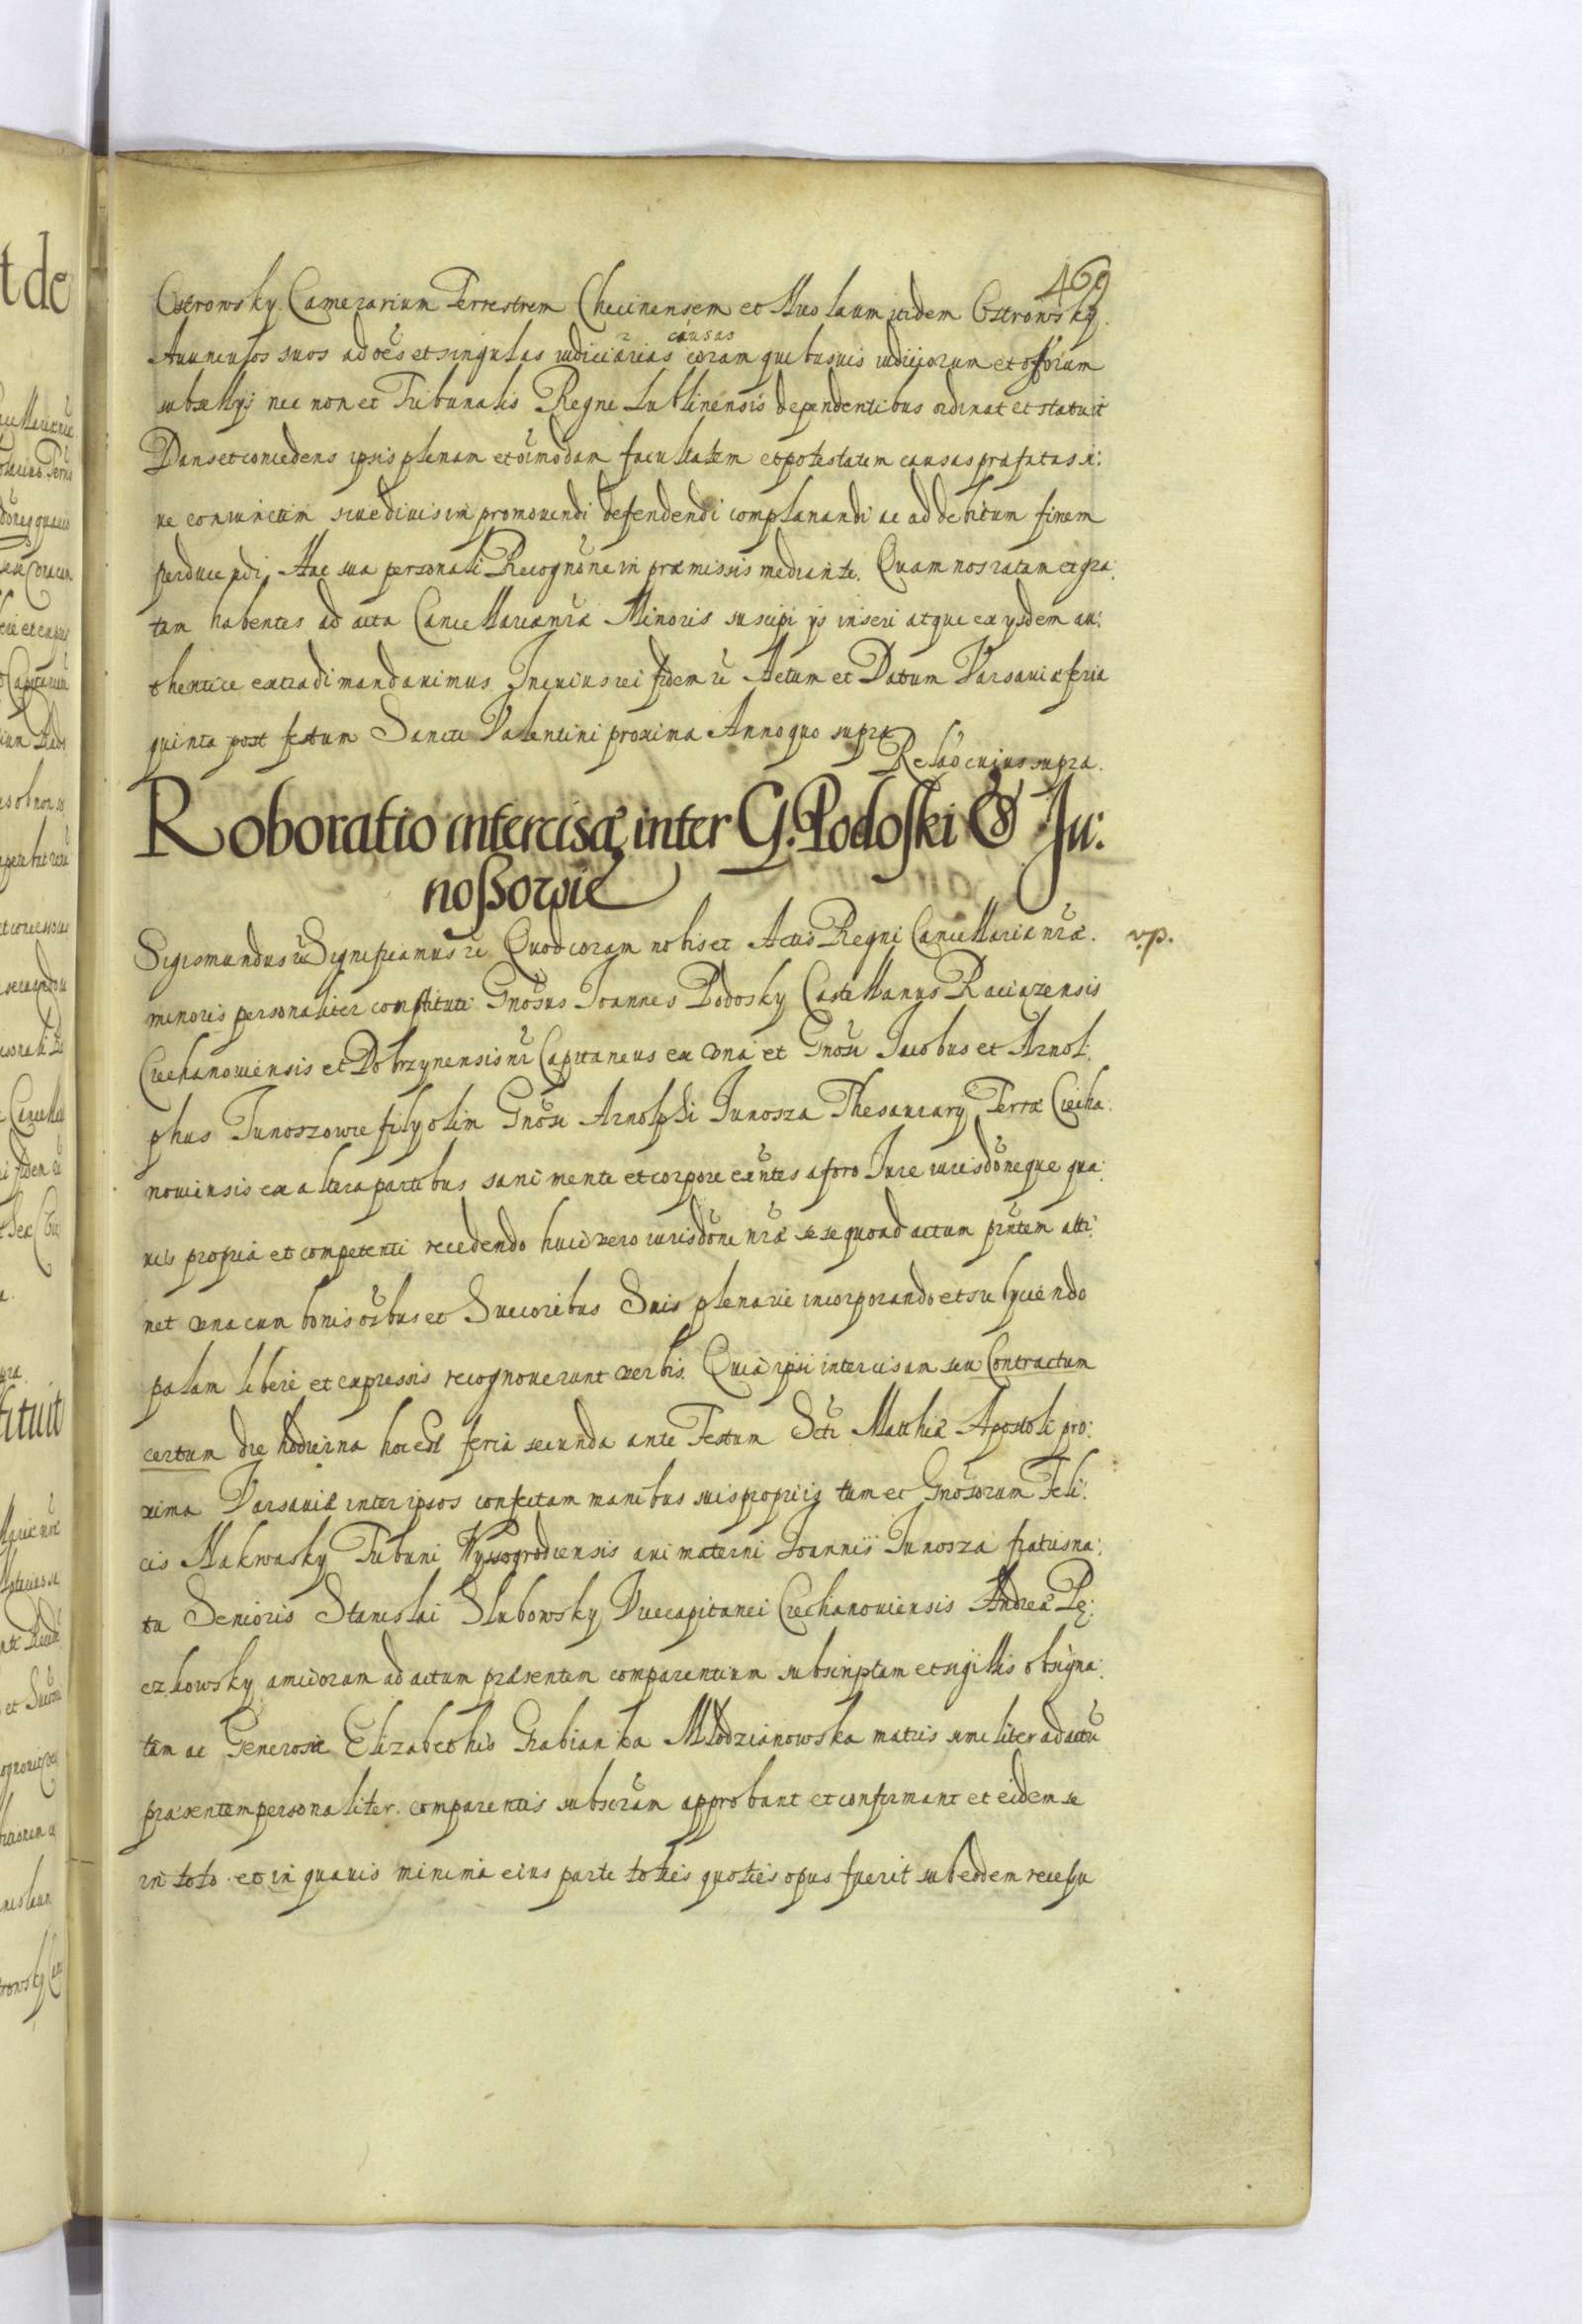 469
Ostrowsky Camerarium Terrestrem Checinensem et Auo laum itidem Ostrowsky.
Auunculos suos ad oẽs et singulas iudiciarias causas coram quibusuis iudiciorum et offiorum
subsellys nec non et Tribunalis Regni Lublinensis dependentibus ordinat et statuit
Dans et concedens ipsis plenam et oĩmodam facultatem et potestatem causas præfatas si:
ue coniunctim siue diuisim promouendi defendendi complanandi ac ad debitum finem
perducendi, Hac sua personali Recognõne in præmissis mediante. Quam nos ratam et gra:
tam habentes ad acta Cancellariæ nræ Minoris suscipi ys inseri atque ex ysdem au:
thentice extradi mandauimus. In cuius rei fidem etc Actum et Datum Varsauiæ feria
quinta post festum Sancti Valentini proxima Anno quo supra
Relaõ cuius supra.
Roboratio intercisæ inter G. Podoski & Ju:
noßowie
Sigismundus etc Significamus etc Quod coram nobis et Actis Regni Cancellariæ nræ.
vp.
minoris personaliter constituti Gnõsus Joannes Podosky Castellanus Raciązensis
Ciechanouiensis et Dobrzynensis nr̃ Capitaneus ex vna et Gnõsi Jacobus et Arnol:
phus Junoszowie filij olim Gnõsi Arnolphi Junosza Thesaurary Terræ Ciecha:
nouiensis ex altera partibus sani mente et corpore eũntes a foro Jure iurisdõneque qua:
uis propria et competenti recedendo huic vero iurisdõni nræ sese quoad actum pñtem atti:
net vna cum bonis oĩbus et Succoribus Suis plenarie incorporando et subyciendo
palam libere et expressis recognouerunt verbis. Quia ipsi intercisam seu Contractum
certum die hodierna hoc est feria secunda ante Festum Scti Matthiæ Apostoli pro:
xima Varsauiæ inter ipsos confectam manibus suis proprijs tum et Gnõsorum Feli:
cis Nakwasky Tribuni Wyssogrodiensis aui materni Joannis Junosza fratris na:
tu Senioris Stanislai Slubowsky Vicecapitanei Ciechanouiensis Andreæ Pę:
czkowsky amicorum ad actum præsentem comparentium subscriptam et sigillis obsigna:
tam ac Generosæ Elizabethis Grabianka Młodzianowska matris similiter ad actũ
præsentem personaliter comparentis subscr̃am approbant et confirmant et eidem se
in toto et in quauis minima eius parte toties quoties opus fuerit sub eodem recessu